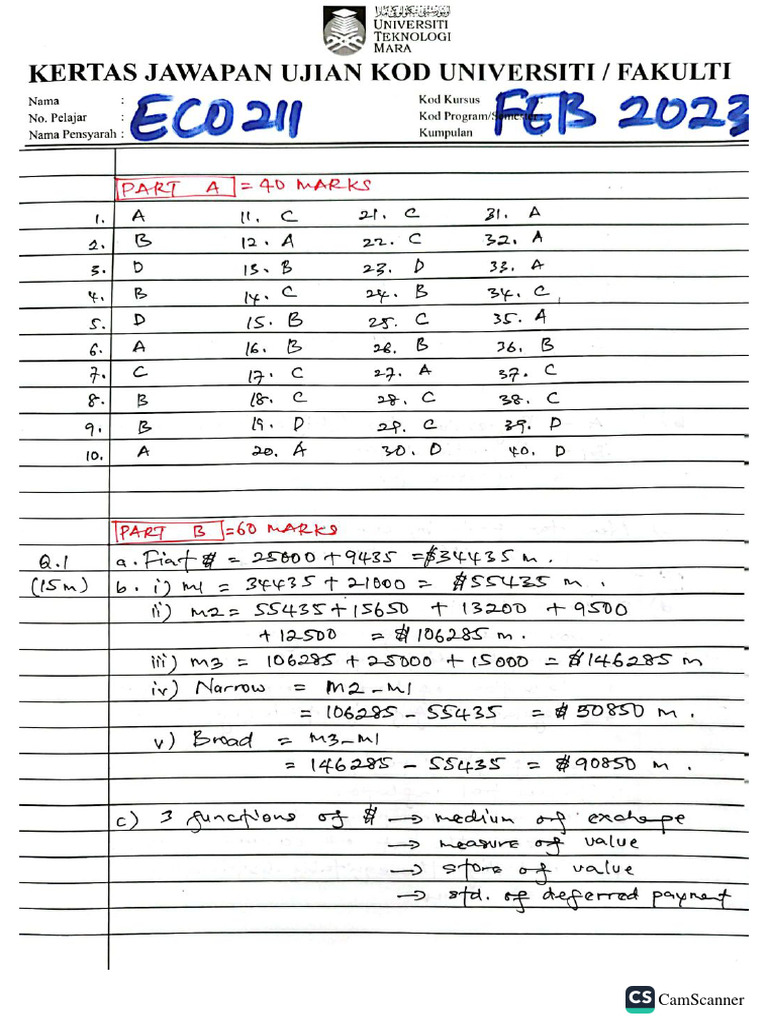 UNIVERSITI
TEKNOLOGI
MARA
KERTAS JAWAPAN UJIAN KOD UNIVERSITI / FAKULTI
Nama :
No. Pelajar :
Nama Pensyarah :
ECO211
Kod Kursus
Kod Program/Semester :
Kumpulan
FEB 2023
PART A = 40 MARKS
1. A 11. C 21. C 31. A
2. B 12. A 22. C 32. A
3. D 13. B 23. D 33. A
4. B 14. C 24. B 34. C
5. D 15. B 25. C 35. A
6. A 16. B 26. B 36. B
7. C 17. C 27. A 37. C
8. B 18. C 28. C 38. C
9. B 19. D 29. C 39. D
10. A 20. A 30. D 40. D
PART B = 60 MARKS
Q.1 a. Fiat $ = 25000 + 9435 = $34435 m.
(15m) b. i) m1 = 34435 + 21000 = $55435 m.
ii) m2 = 55435 + 15650 + 13200 + 9500
+ 12500 = $106285 m.
iii) m3 = 106285 + 25000 + 15000 = $146285 m
iv) Narrow = m2 - m1
= 106285 - 55435 = $50850 m.
v) Broad = m3 - m1
= 146285 - 55435 = $90850 m.
c) 3 functions of $ → medium of exchange
→ measure of value
→ store of value
→ std. of deferred payment
CS CamScanner